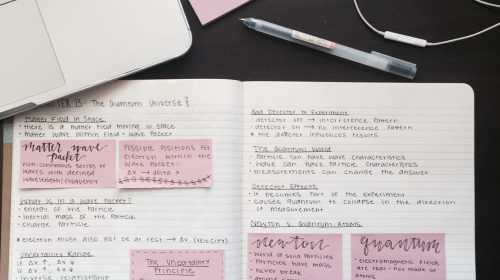 CHAPTER 13: The Quantum Universe
Matter Field In Space
• there is a matter field moving in space
• matter wave within field → wave packet
matter wave
packet
non-continuous series of
waves with defined
wavelength/frequency
Possible positions for
electron within the
wave packet:
ΔX → delta X
What is in a Wave Packet?
• energy of the particle
• inertial mass of the particle
• charge particle
* electron must also not be at rest → Δv (velocity)
Uncertainty Range
if ΔX ↑, ΔV ↓
if ΔX ↓, ΔV ↑
inverse relationship
The Uncertainty
Principle
Add Detector to Experiment
• detector off → interference pattern
• detector on → no interference pattern
* the detector influences results
The Quantum World
• Particle can have wave characteristics
• Wave can have particle characteristics
• measurements can change the answer
Detector Effects
• it becomes part of the experiment
• Causes quantum to collapse in the direction
of measurement
Newton v. Quantum Atoms
newton
• World of solid particles
• Particles have mass
• never break
quantum
• electromagnetic fields
are real - not made in
atomic